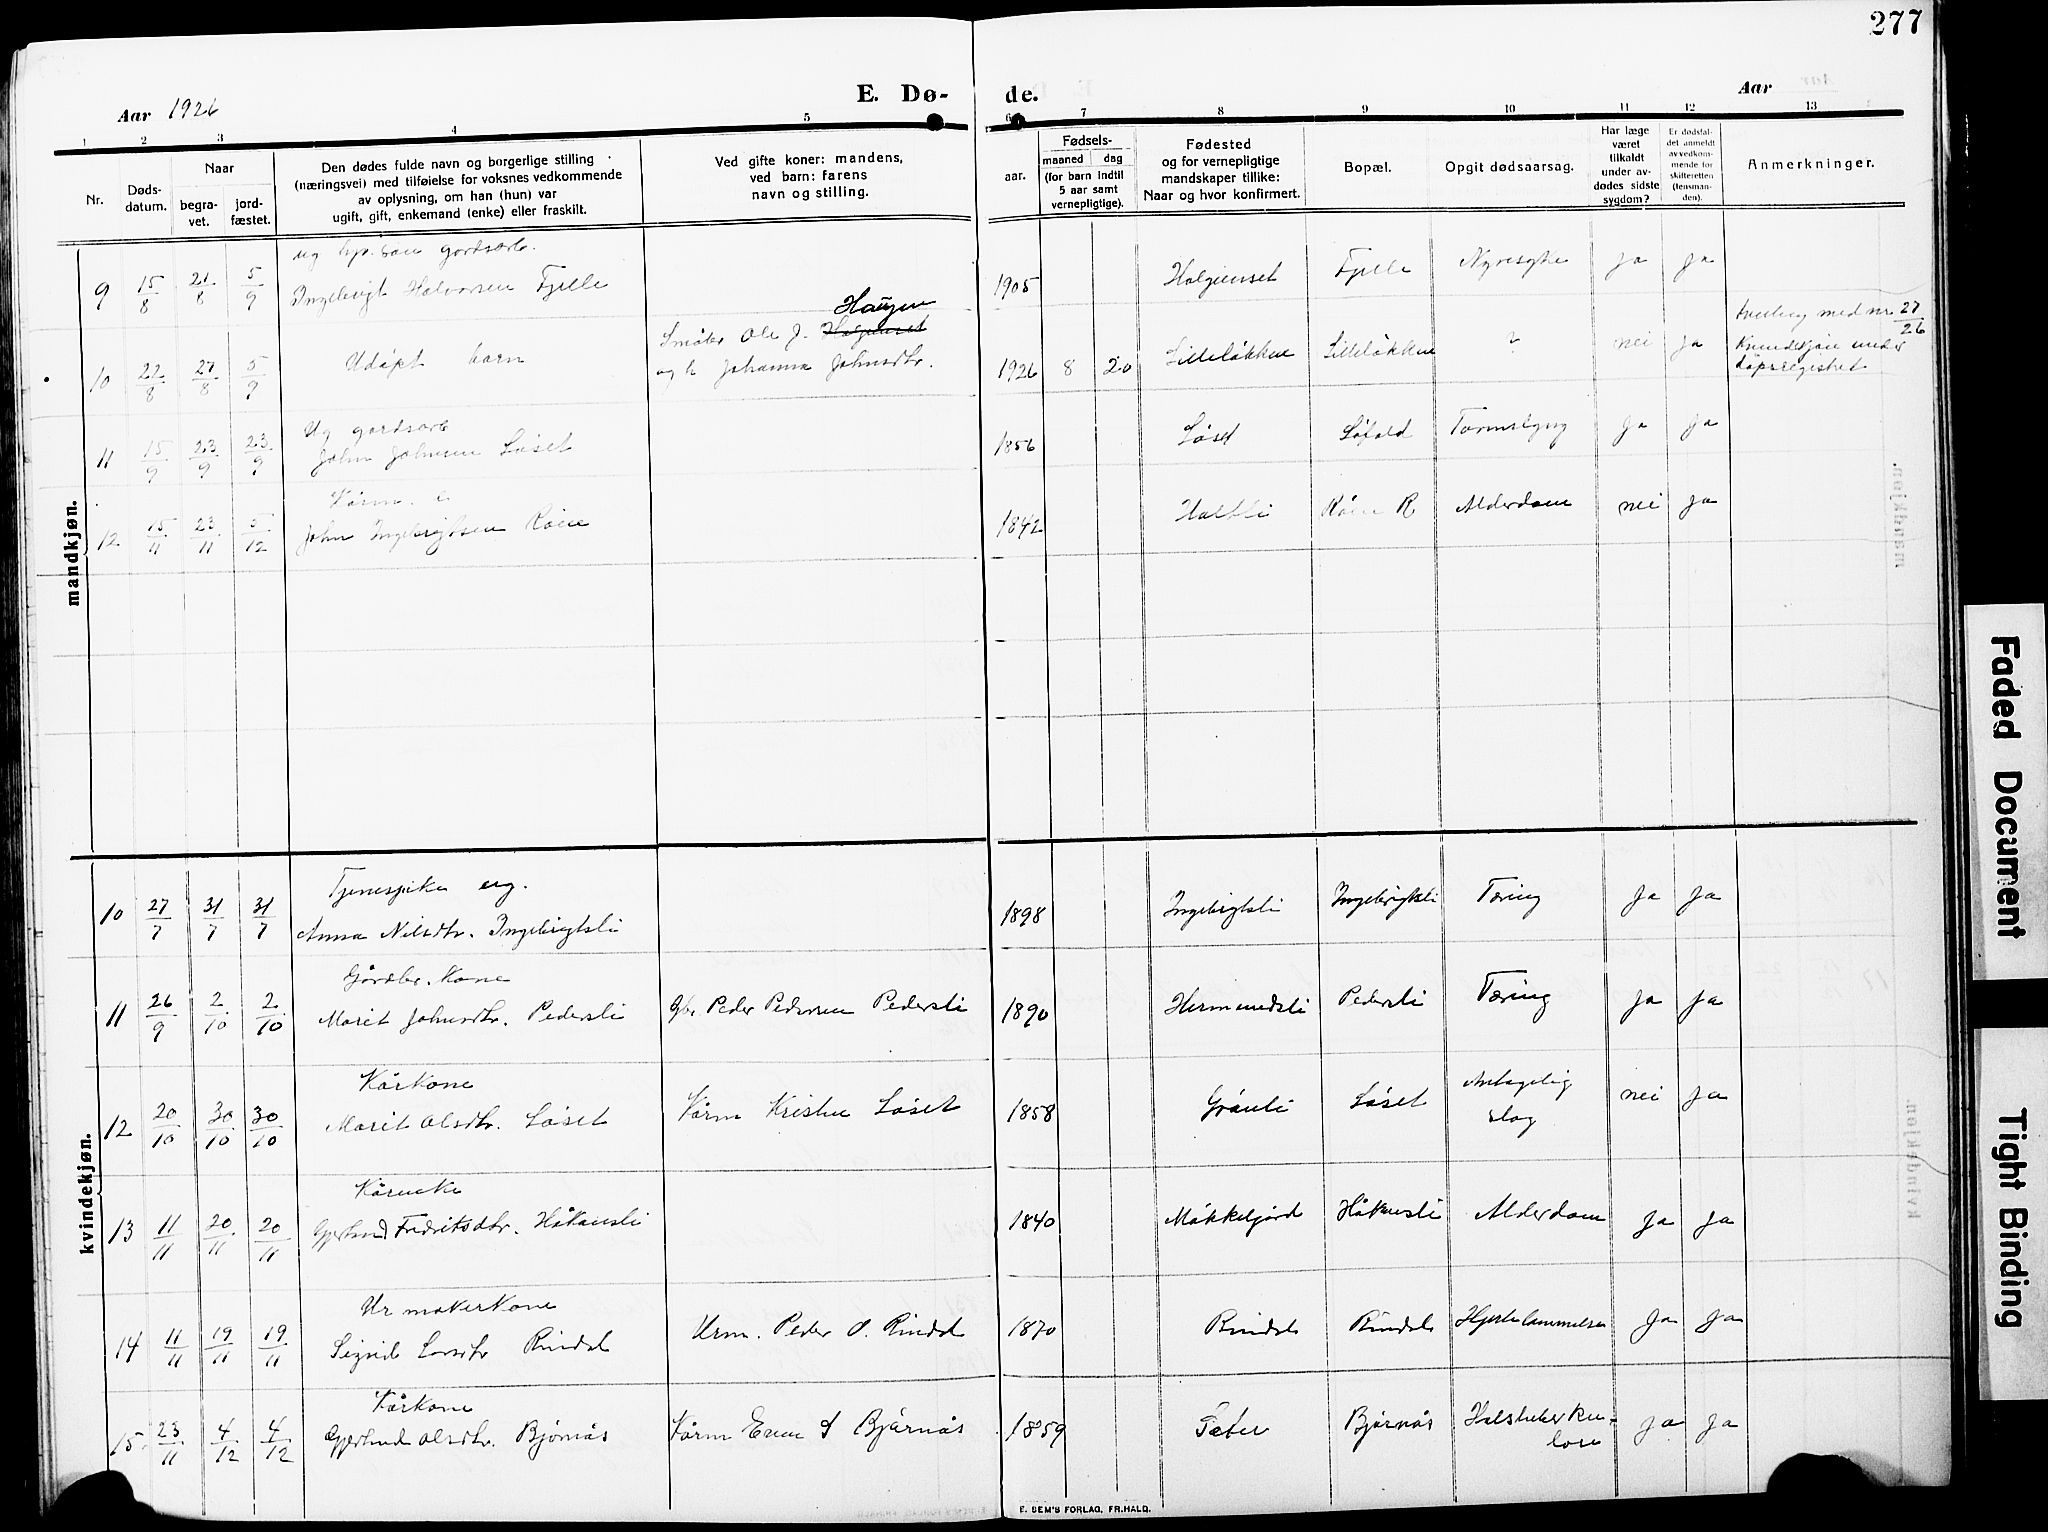 277
E. Dø- de.
Aar 1926
Aar
1 2 3 4 5 6 7 8 9 10 11 12 13
Nr.
Døds-
datum.
Naar
begra-
vet.
jord-
fæstet.
Den dødes fulde navn og borgerlige stilling
(næringsvei) med tilføielse for voksnes vedkommende
av oplysning, om han (hun) var
ugift, gift, enkemand (enke) eller fraskilt.
Ved gifte koner: mandens,
ved barn: farens
navn og stilling.
Fødsels-
aar.
maaned dag
(for barn indtil
5 aar samt
vernepligtige).
Fødested
og for vernepligtige
mandskaper tillike:
Naar og hvor konfirmert.
Bopæl.
Opgit dødsaarsag.
Har læge
været
tilkaldt
under av-
dødes sidste
sygdom?
Er dødsfal-
det anmeldt
av vedkom-
mende for
skifteretten
(lensman-
den).
Anmerkninger.
mandkjøn.
ug gardsarb.
9 15/8 21/8 5/9 Ingebrigt Halvorsen Fjelle 1905 Holgeinset Fjelle Nyresyke ja ja
Haugen
Småbr Ole J. Holgeinset
10 22/8 27/8 5/9 Udøpt barn og h Johanna Johnsdtr. 1926 8 20 Lilleløkken Lilleløkken ? nei ja
Tvilling med nr 27/26
Kvindekjøn under
døpsregistret
Ug gardsarb
11 15/9 23/9 23/9 John Johnsen Løset 1856 Løset Løfald Tarmslyng Ja Ja
Kårm. e
12 15/11 23/11 5/12 John Ingebrigtsen Røen 1842 Holtli Røen R Alderdom nei Ja
kvindekjøn.
Tjenespike ug.
10 27/7 31/7 31/7 Anna Nilsdtr. Ingebrigtsli 1898 Ingebrigtsli Ingebrigtsli Tæring Ja Ja
Gårdbr. Kone
11 26/9 2/10 2/10 Marit Johnsdtr. Pedersli Gbr Peder Pedersen Pedersli 1890 Hermundsli Pedersli Tæring Ja Ja
Kårkone
12 20/10 30/10 30/10 Marit Olsdtr. Løset Kårm Kristen Løset 1858 Grønli Løset Antagelig
slag nei Ja
Kårenke
13 11/11 20/11 20/11 Gjertrud Fredriksdtr. Håkonsli 1840 Møkkelgård Håkonsli Alderdom Ja Ja
Urmakerkone
14 11/11 19/11 19/11 Sigrid Larsdtr Rindal Urm. Peder O. Rindal 1870 Rindal Rindal Hjertelammelse Ja Ja
Kårkone
15 23/11 4/12 4/12 Gjertrud Olsdtr. Bjørnås Kårm Even Bjørnås 1859 Bjørnås Halstuberku-
lose Ja Ja
E. SEM'S FORLAG, FR.HALD.
Faded Document
Tight Binding